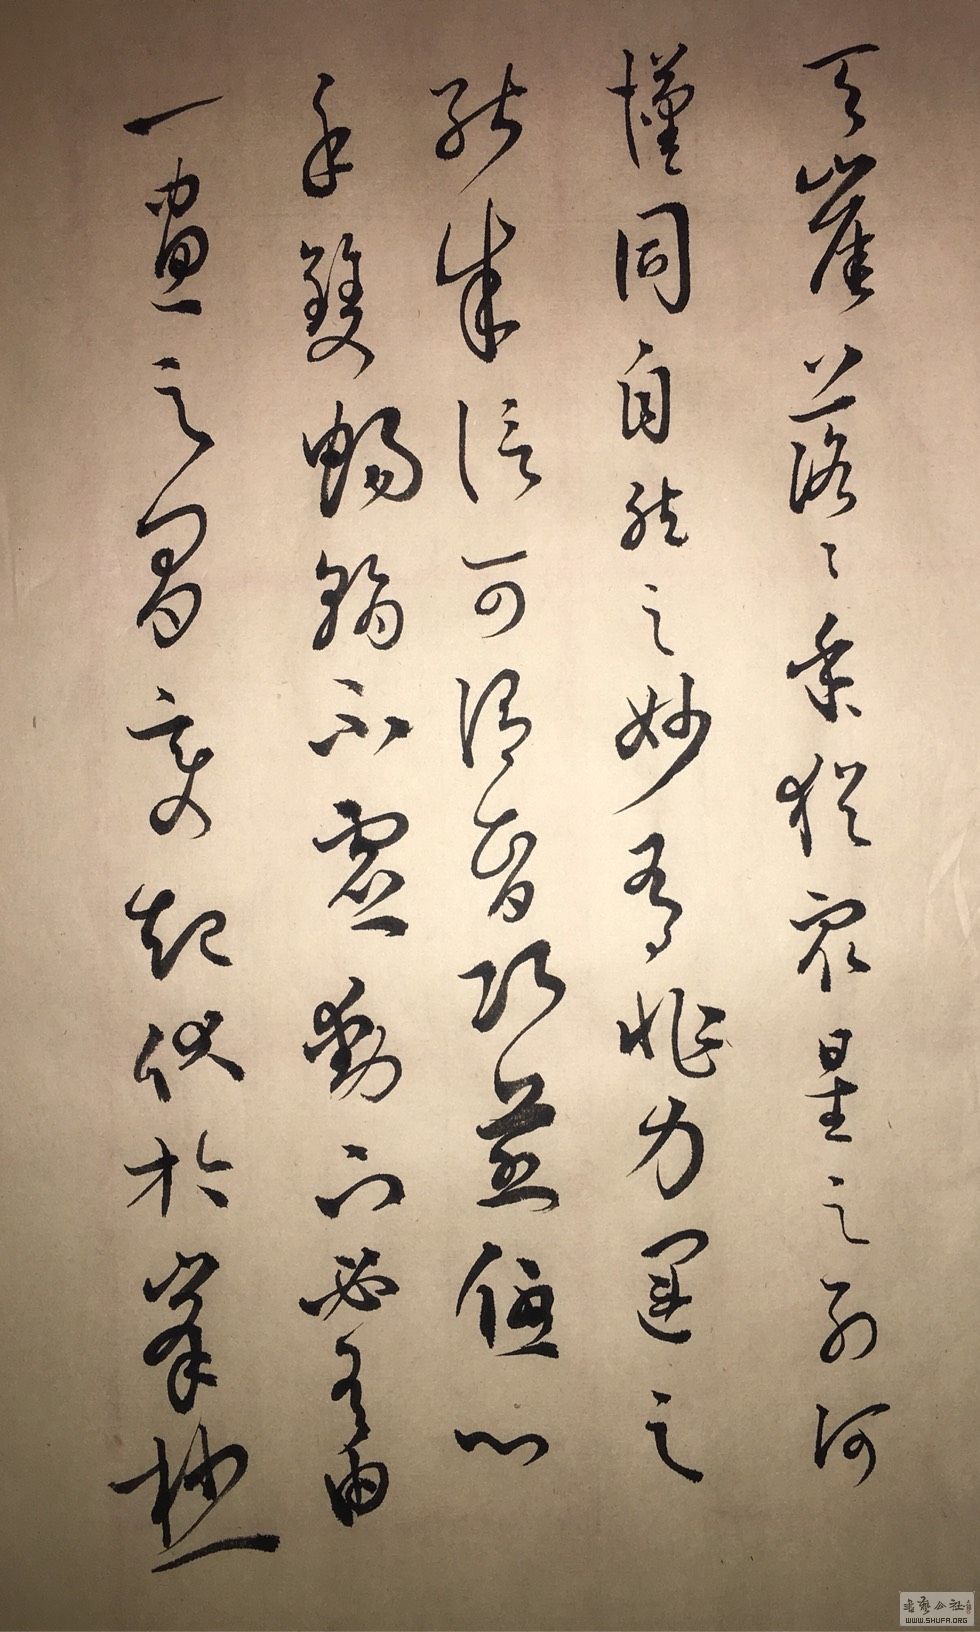 天崖落〻乎猶眾星之列河
漢同自然之妙有非力運之
能成信可謂智巧兼優心
手雙暢翰不虛動下必有由
一畫之間變起伏於峯杪
书艺公社
WWW.SHUFA.ORG